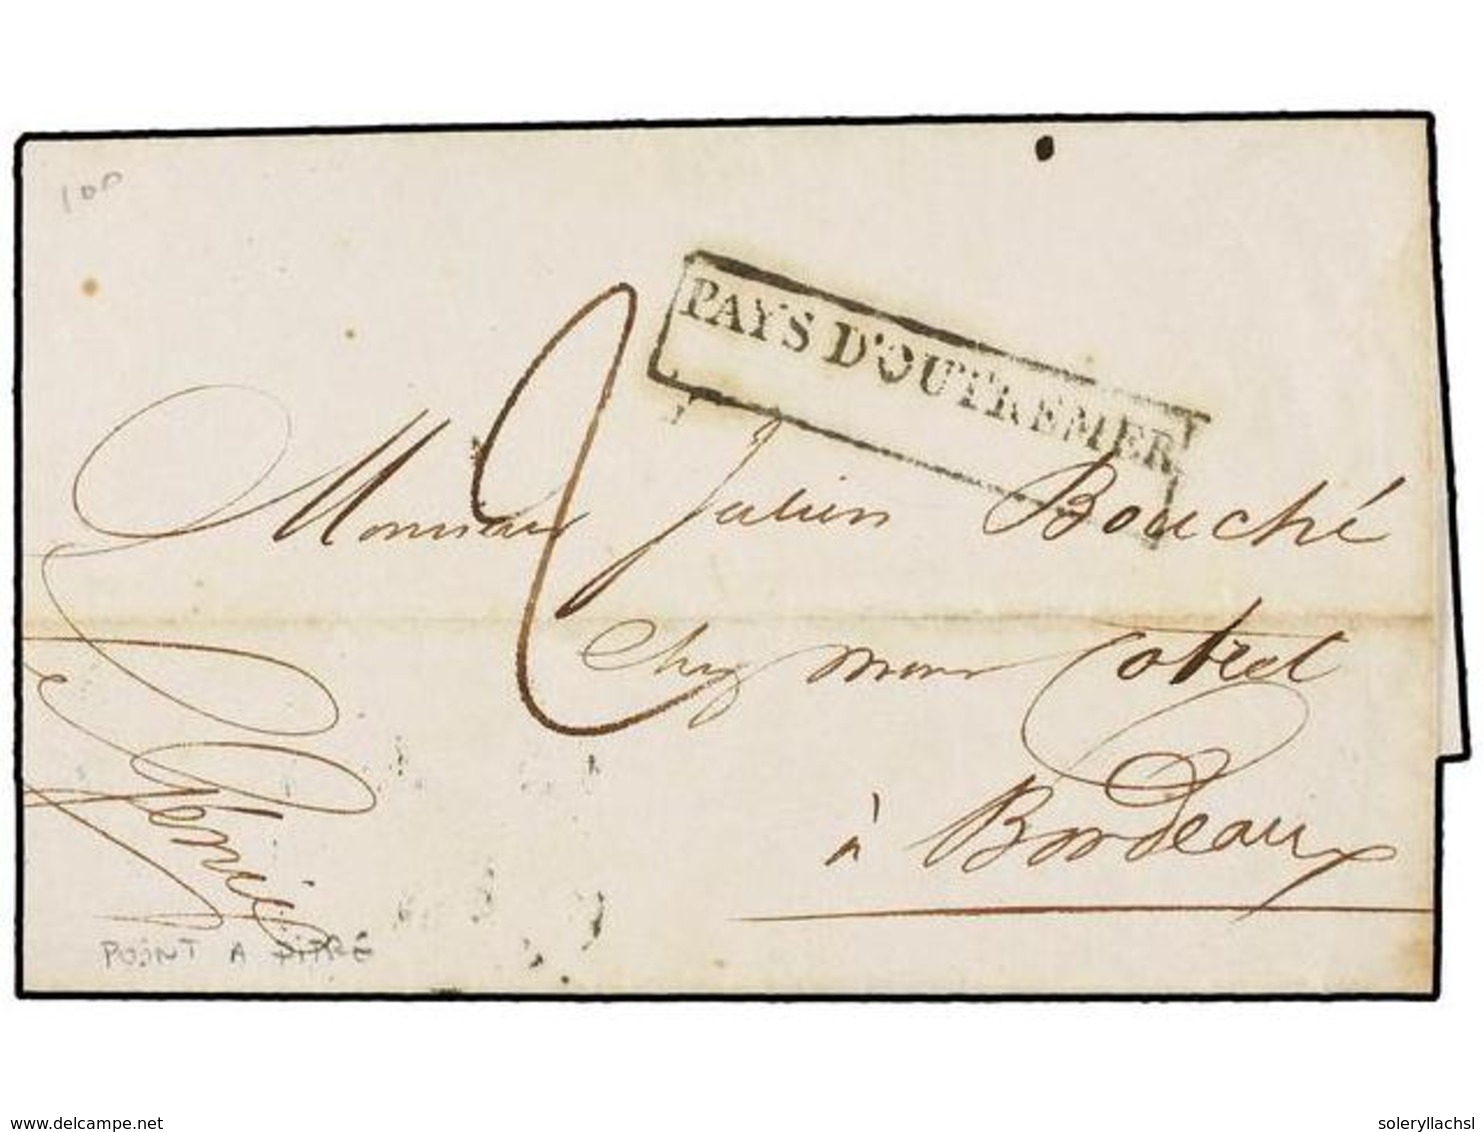 100
PAYS D'OUTREMER
2
Monsieur Julien Bouché
Chez mons Cotrel
à Bordeaux
POINT A PITRE
delcampe.net
soleryllachsl